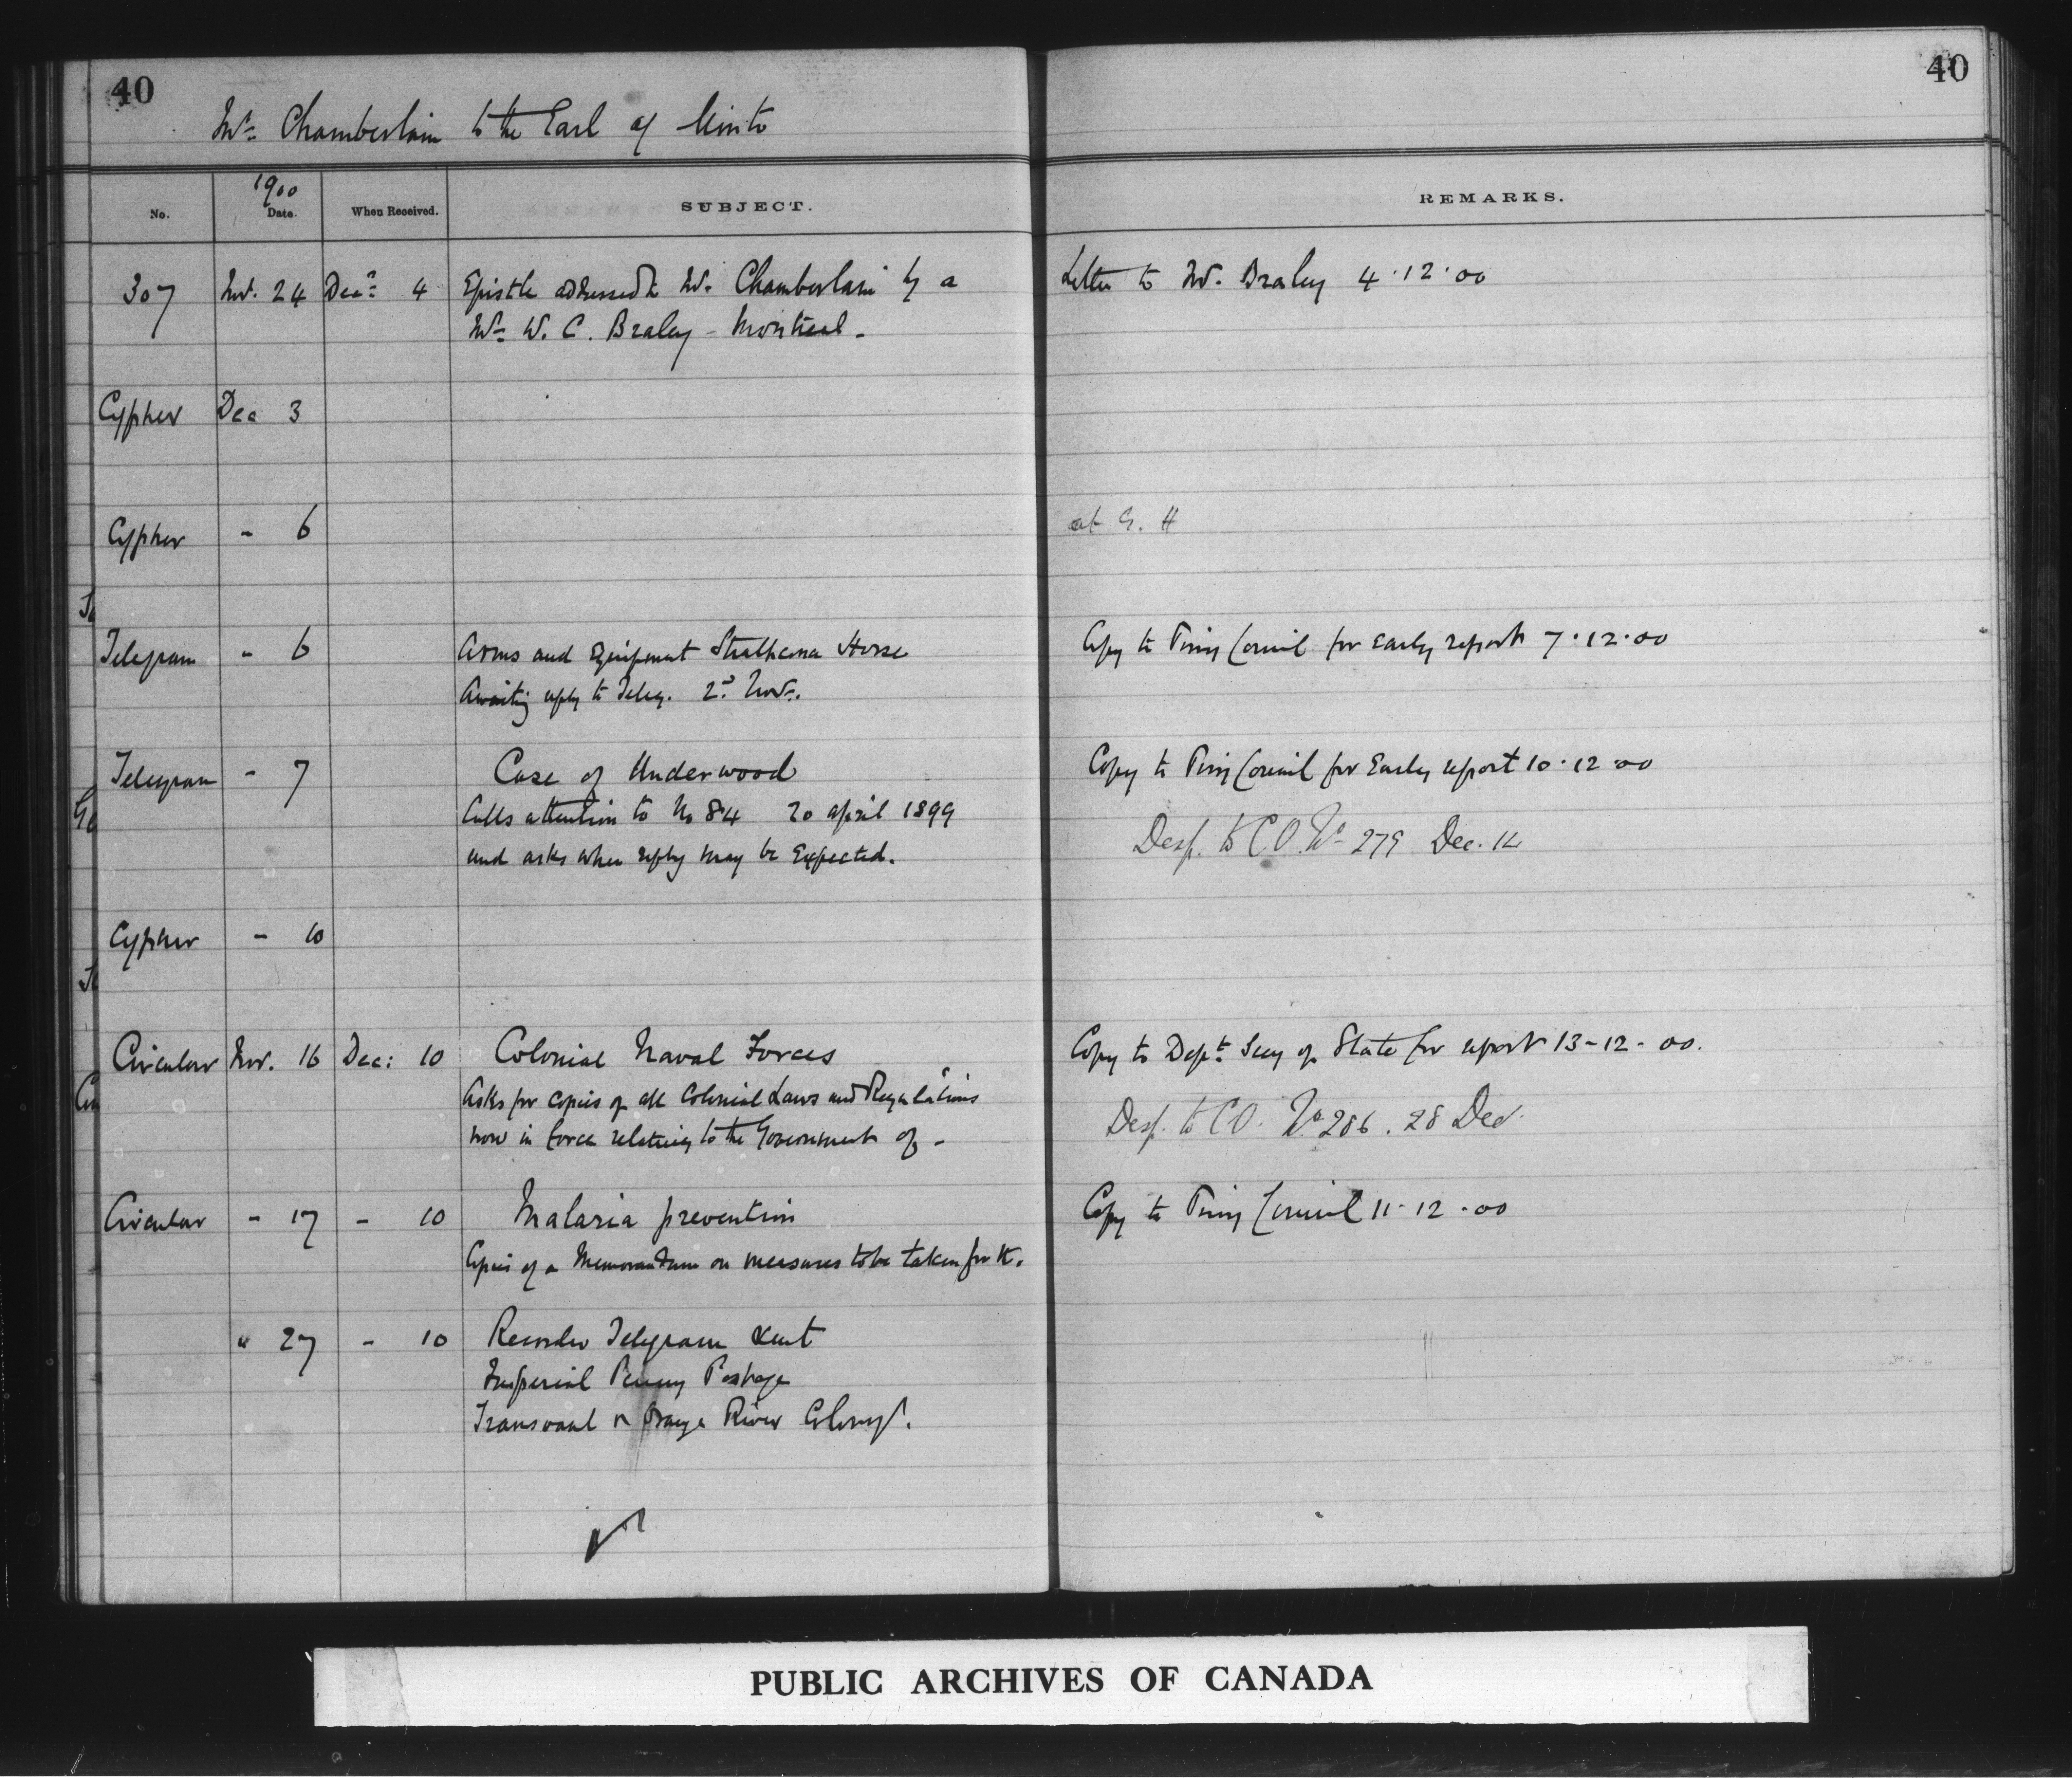 40
40
Mr. Chamberlain to the Earl of Minto
No.
1900
Date.
When Received.
SUBJECT.
REMARKS.
307 Nov. 24 Decr 4 Epistle addressed to Mr. Chamberlain by a
Mr. W. C. Braley - Montreal -
Letter to Mr. Braley 4.12.00
Cypher Dec 3
Cypher - 6
at G. H
Telegram - 6 Arms and Equipment Strathcona Horse
Awaiting reply to Teleg. 2d Novr.
Copy to Privy Council for early report 7.12.00
Telegram - 7 Case of Underwood
Calls attention to No 84 20 april 1899
and asks when reply may be Expected.
Copy to Privy Council for Early report 10.12.00
Desp. to C.O. No 279 Dec. 14
Cypher - 10
Circular Nov. 16 Dec: 10 Colonial Naval Forces
Asks for copies of all Colonial Laws and Regulations
now in force relating to the Government of -
Copy to Dept Secy of State for report 13-12-00.
Desp. to C.O. No 286. 28 Dec.
Circular - 17 - 10 Malaria prevention
Copies of a Memorandum on measures to be taken for the.
Copy to Privy Council 11-12-00
" 27 - 10 Recorder Telegram sent
Imperial Penny Postage
Transvaal & Orange River Colony.
PUBLIC ARCHIVES OF CANADA